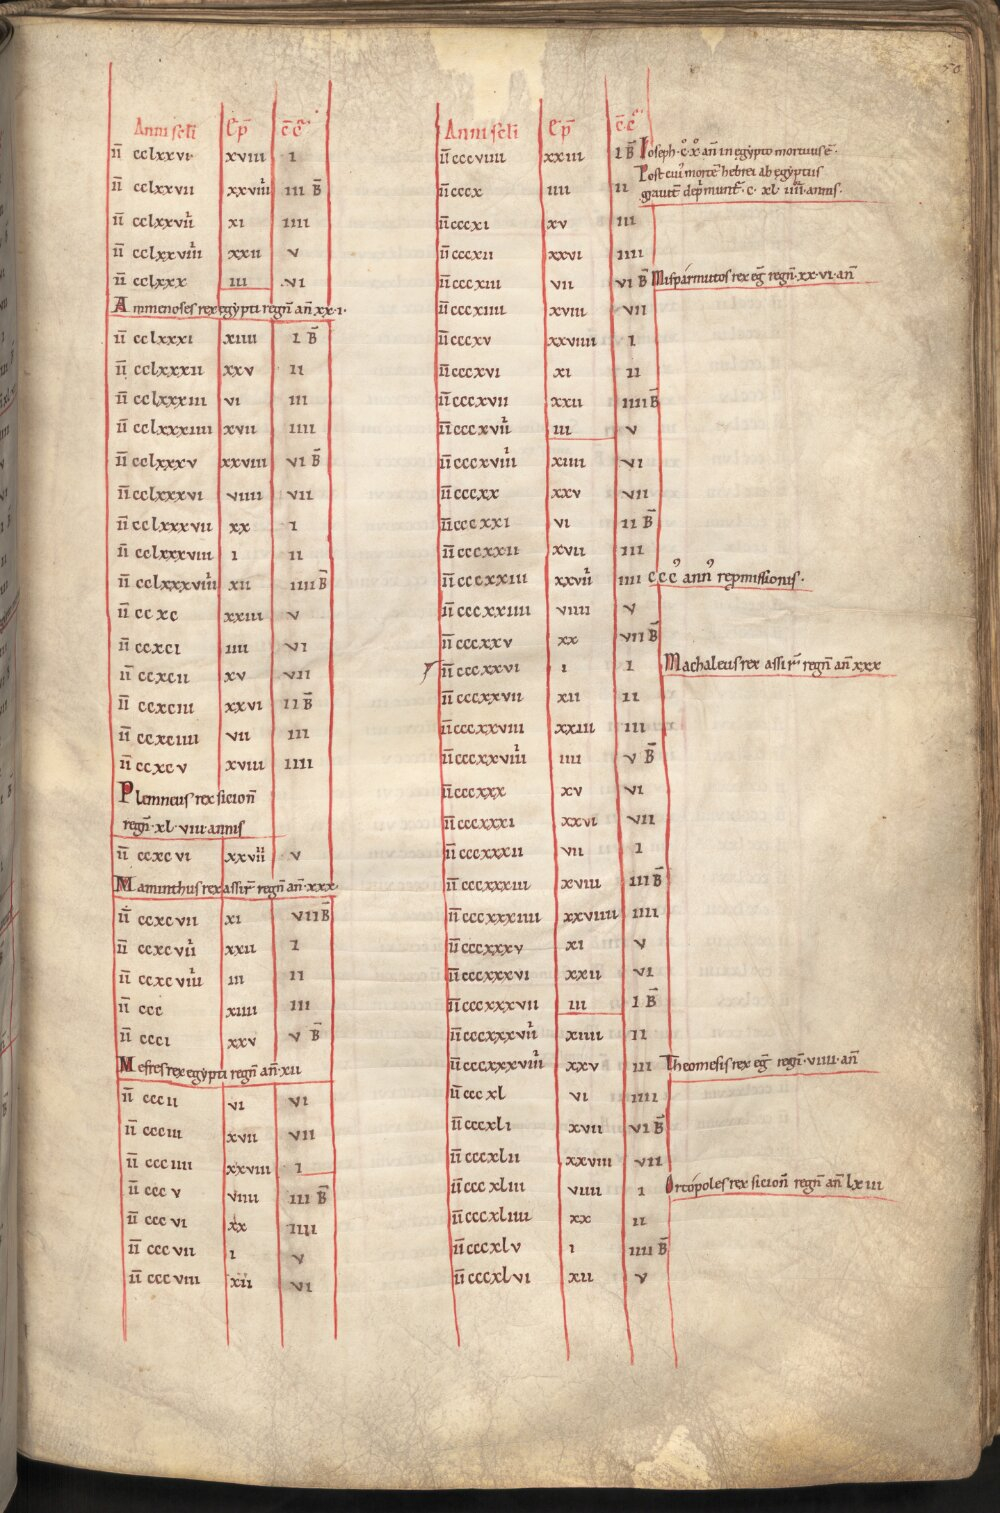 50
Anni scli Ep̄ c̄c̄
īī cclxxvi xviii i
īī cclxxvii xxviiii iii B̄
īī cclxxviii xi iiii
īī cclxxviiii xxii v
īī cclxxx iii vi
Ammenoses rex egypti regn̄ an̄ xx·i·
īī cclxxxi xiiii i B̄
īī cclxxxii xxv ii
īī cclxxxiii vi iii
īī cclxxxiiii xvii iiii
īī cclxxxv xxviii vi B̄
īī cclxxxvi viiii vii
īī cclxxxvii xx i
īī cclxxxviii i ii
īī cclxxxviiii xii iiii B̄
īī ccxc xxiii v
īī ccxci iiii vi
īī ccxcii xv vii
īī ccxciii xxvi ii B̄
īī ccxciiii vii iii
īī ccxcv xviii iiii
Plemneus rex sicion̄
regn̄·xl·viii·annis
īī ccxcvi xxviiii v
Maminthus rex assir̄ regn̄ an̄·xxx·
īī ccxcvii xi vii B̄
īī ccxcviii xxii i
īī ccxcviiii iii ii
īī ccc xiiii iii
īī ccci xxv v B̄
Mesres rex egypti regn̄ an̄·xii
īī cccii vi vi
īī ccciii xvii vii
īī ccciiii xxviii i
īī cccv viiii iii B̄
īī cccvi xx iiii
īī cccvii i v
īī cccviii xii vi
Anni scli Ep̄ c̄c̄
īī cccviiii xxiii i B̄ Ioseph·c·x an̄ in egypto mortuus ē·
Post cui' mortē hebrei ab egyptiis
īī cccx iiii ii grauit̄ dep̄munt̄·c·xl·iiii·annis·
īī cccxi xv iii
īī cccxii xxvi iiii
īī cccxiii vii vi B̄ Misparmutos rex eḡ regn̄·xx·vi·an̄
īī cccxiiii xviii vii
īī cccxv xxviiii i
īī cccxvi xi ii
īī cccxvii xxii iiii B̄
īī cccxviii iii v
īī cccxviiii xiiii vi
īī cccxx xxv vii
īī cccxxi vi ii B̄
īī cccxxii xvii iii
īī cccxxiii xxviii iiii ccc' ann' rep̄missionis·
īī cccxxiiii viiii v
īī cccxxv xx vii B̄
īī cccxxvi i i Machaleus rex assir̄ regn̄ an̄ xxx
īī cccxxvii xii ii
īī cccxxviii xxiii iii
īī cccxxviiii iiii v B̄
īī cccxxx xv vi
īī cccxxxi xxvi vii
īī cccxxxii vii i
īī cccxxxiii xviii iii B̄
īī cccxxxiiii xxviiii iiii
īī cccxxxv xi v
īī cccxxxvi xxii vi
īī cccxxxvii iii i B̄
īī cccxxxviii xiiii ii
īī cccxxxviiii xxv iii Theomesis rex eḡ regn̄·viiii·an̄
īī cccxl vi iiii
īī cccxli xvii vi B̄
īī cccxlii xxviii vii
īī cccxliii viiii i Ortopoles rex sicion̄ regn̄ an̄ lxiii
īī cccxliiii xx ii
īī cccxlv i iiii B̄
īī cccxlvi xii v